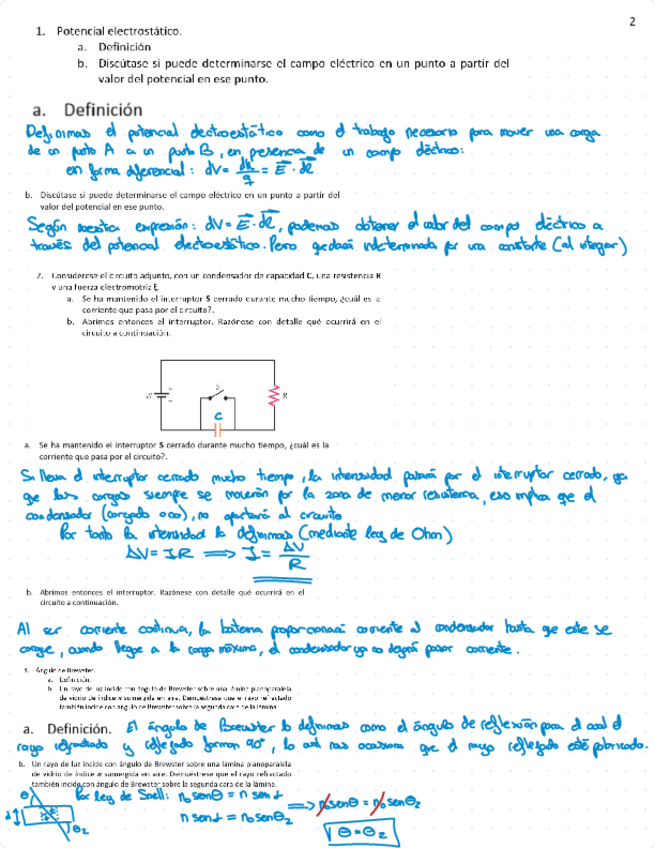 2
1. Potencial electrostático.
a. Definición
b. Discútase si puede determinarse el campo eléctrico en un punto a partir del
valor del potencial en ese punto.
a. Definición
Definimos el potencial electroestático como el trabajo necesario para mover una carga
de un punto A a un punto B, en presencia de un campo eléctrico:
en forma diferencial: dV = dW/q = E · dl
b. Discútase si puede determinarse el campo eléctrico en un punto a partir del
valor del potencial en ese punto.
Según nuestra expresión: dV = E · dl, podemos obtener el valor del campo eléctrico a
través del potencial electroestático. Pero quedará indeterminada por una constante (al integrar)
2. Considérese el circuito adjunto, con un condensador de capacidad C, una resistencia R
y una fuerza electromotriz ξ
a. Se ha mantenido el interruptor S cerrado durante mucho tiempo, ¿cuál es la
corriente que pasa por el circuito?.
b. Abrimos entonces el interruptor. Razónese con detalle qué ocurrirá en el
circuito a continuación.
S
R
C
a. Se ha mantenido el interruptor S cerrado durante mucho tiempo, ¿cuál es la
corriente que pasa por el circuito?.
Si lleva el interruptor cerrado mucho tiempo, la intensidad pasará por el interruptor cerrado, ya
que las cargas siempre se moverán por la zona de menor resistencia, eso implica que el
condensador (cargado o no), no aportará al circuito
Por tanto la intensidad la definimos (mediante ley de Ohm)
ΔV = IR ⟹ I = ΔV/R
b. Abrimos entonces el interruptor. Razónese con detalle qué ocurrirá en el
circuito a continuación.
Al ser corriente continua, la batería proporcionará corriente al condensador hasta que este se
cargue, cuando llegue a la carga máxima, el condensador ya no dejará pasar corriente.
Ángulo de Brewster.
a. Definición.
b. Un rayo de luz incide con ángulo de Brewster sobre una lámina planoparalela
de vidrio de índice n sumergida en aire. Demuéstrese que el rayo refractado
también incide con ángulo de Brewster sobre la segunda cara de la lámina.
a. Definición. El ángulo de Brewster lo definimos como el ángulo de reflexión para el cual el
rayo refractado y reflejado forman 90°, lo cual nos ocasiona que el rayo reflejado esté polarizado.
b. Un rayo de luz incide con ángulo de Brewster sobre una lámina planoparalela
de vidrio de índice n sumergida en aire. Demuéstrese que el rayo refractado
también incide con ángulo de Brewster sobre la segunda cara de la lámina.
Por ley de Snell: n₀ senθ = n sen t
n sen t = n₀ senθ₂
⟹ n₀ senθ = n₀ senθ₂
θ = θ₂
θ
θ₂